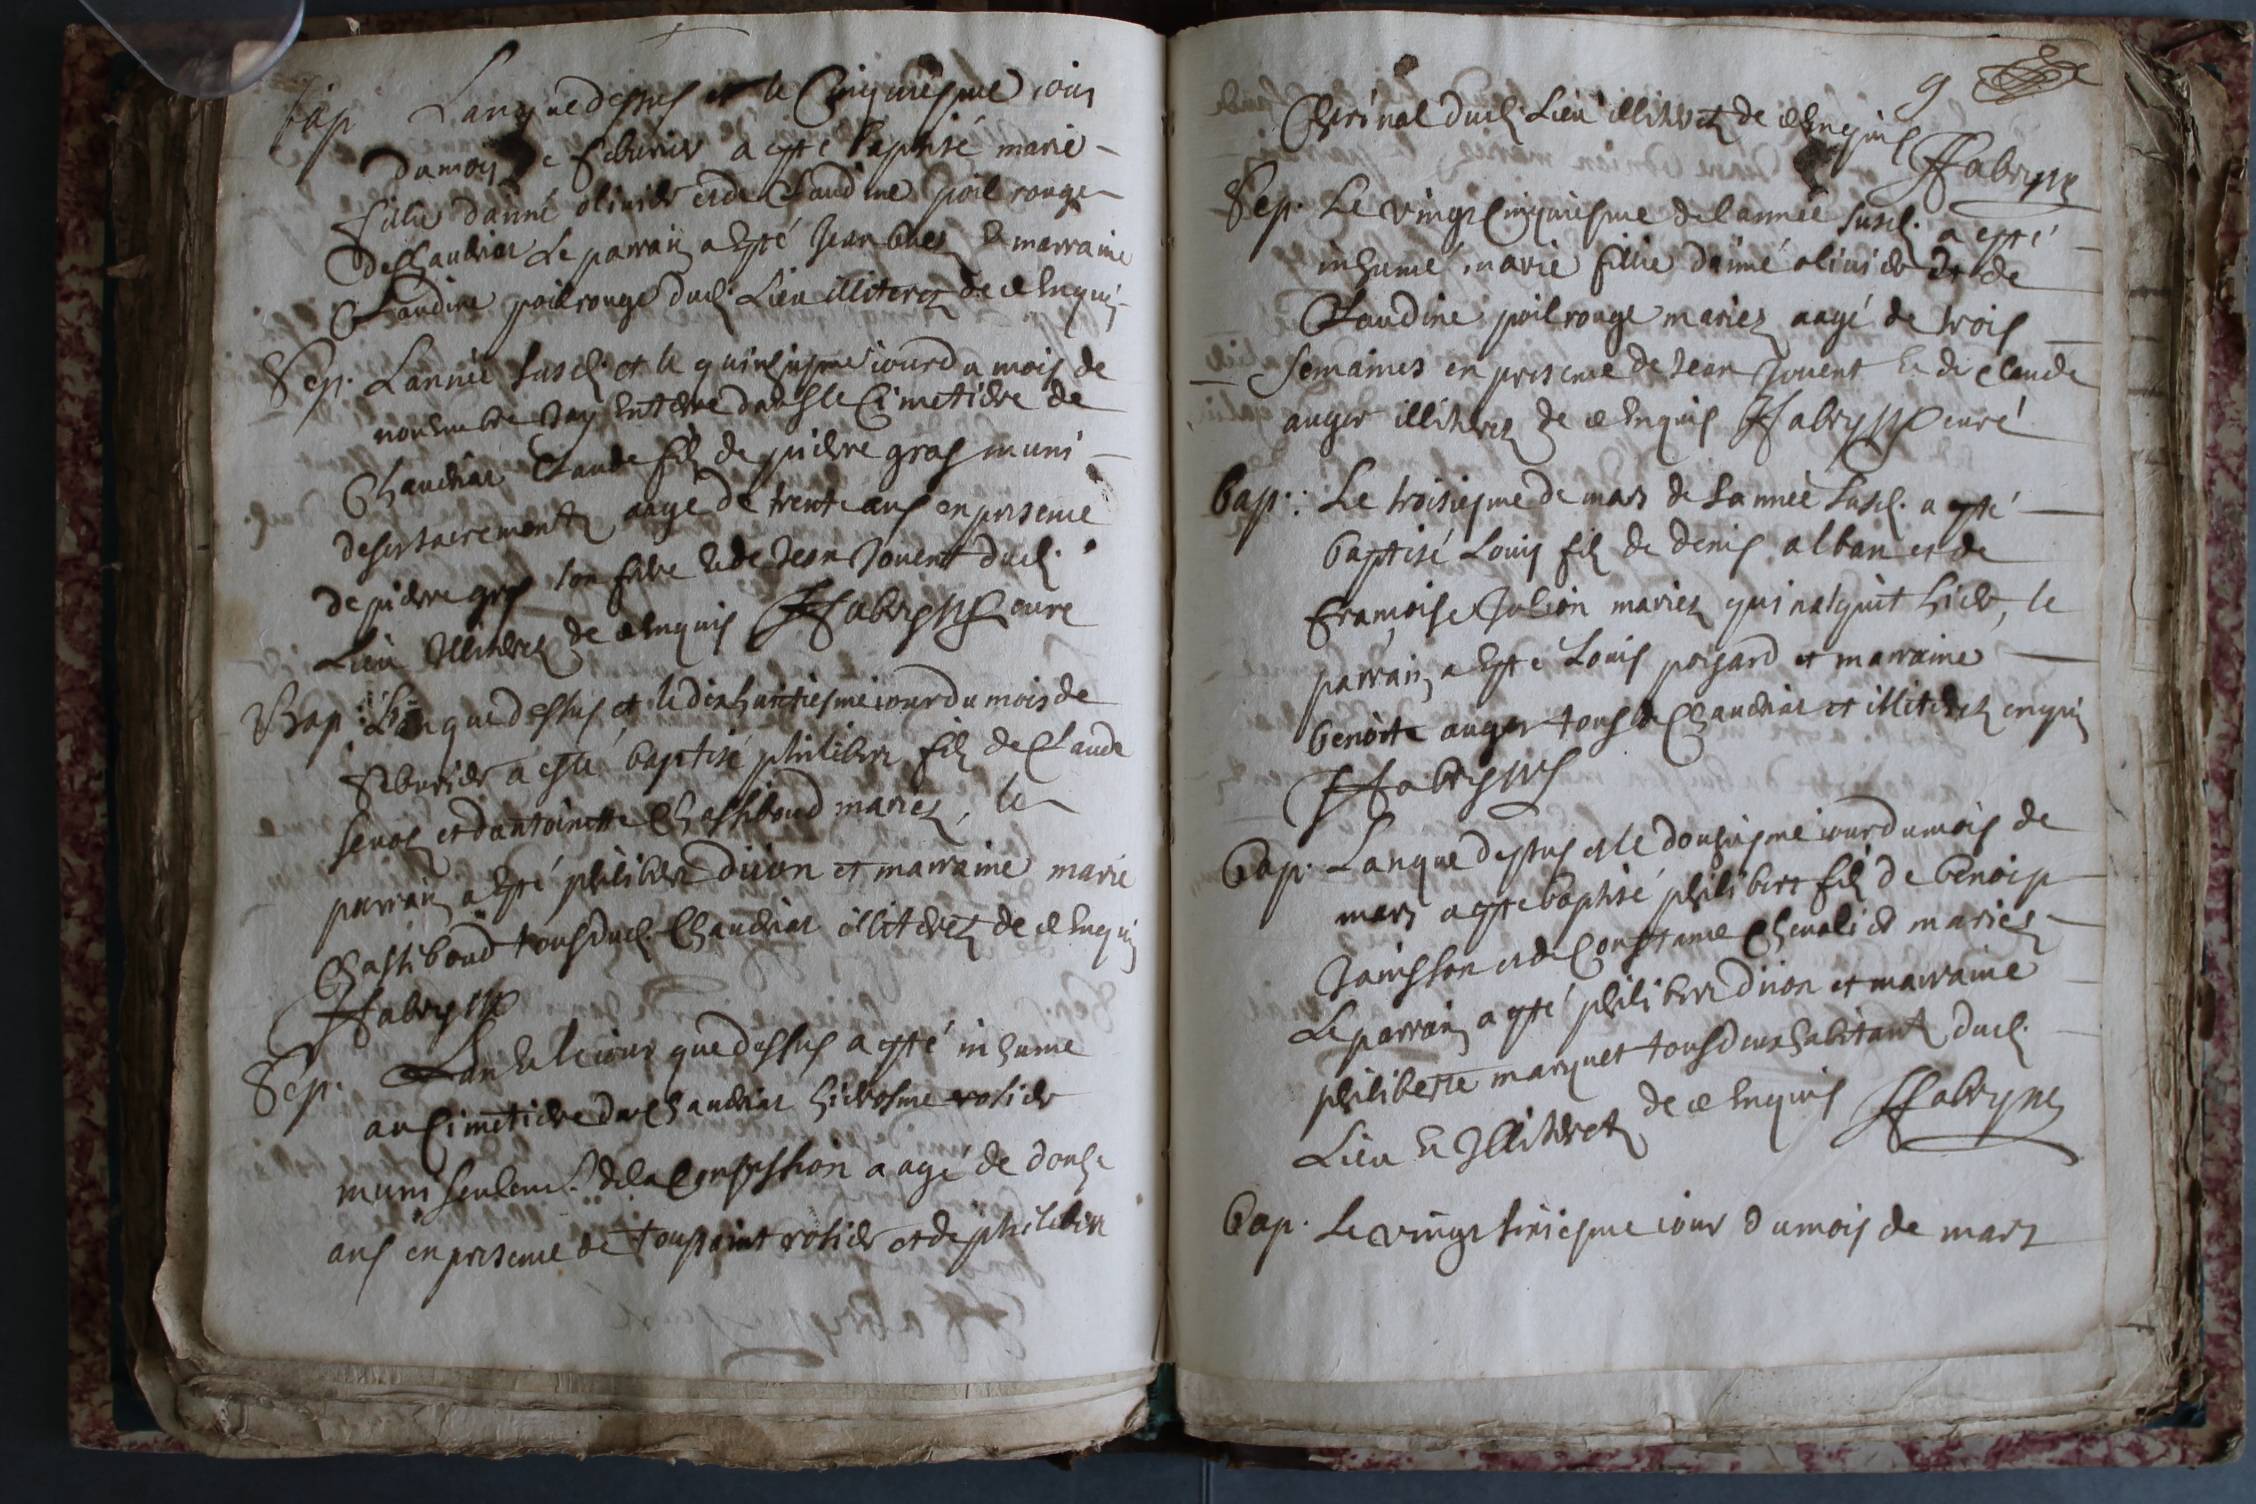 bap Lan que dessus et le Cinquiesme iour
du mois de feburier a esté baptisé marie
fillie daimé oliuier et de Claudine poil rouge
de Chaudiar Le parrain a Esté Jean & marraine
Claudine poil rouge dud. Lieu illiterez de ce Enquis
Sep. Lannée susd. et le quinsiesme iour du mois de
nouembre Jay Enterré dans le Cimetiere de
Chaudiar Claude filz de pierre gros muni
des sacrements aagé de trente ans en presence
de pierre gros son frere & de Jean Jouent dud.
Lieu Illiterez de ce Enquis Fabry curé
Bap : Lan que dessus et le dixhuictiesme iour du mois de
feburier a esté baptisé philibert filz de Claude
seuoz et dantoinette Chastiboud mariez, le
parrain a Esté philibert diion et marraine marie
Chastiboud tous dud. Chaudiar illiterez de ce Enquis
Fabry
Sep. Lan & le iour que dessus a esté inhumé
au Cimetiere du Chaudiar hierosme rosier
muni seulemt. de la Confession aagé de douse
ans en presence de toussaint rosier et de philibert
9
dud. Lieu illiterez de ce Enquis Fabry
Sep. Le vingt Cinquiesme de lannée susd. a esté
inhumé marie fillie daimé oliuier et de
Claudine poil rouge mariez aagé de trois
semaines en presence de Jean Jouent & de Claude
auger illiterez de ce Enquis Fabry curé
Bap : Le troisiesme de mars de Lannée susd. a esté
baptisé Louis filz de denis alban et de
francoise Julion mariez qui nasquit hier, le
parrain a Esté Louis poisard et marraine
benoite auger tous de Chaudiar et illiterez enquis
Fabry
Bap. Lan que dessus et le dousiesme iour du mois de
mars a esté baptisé philibert filz de benoist
Janisson et de Constance Cheualier mariez
Le parrain a esté philibert diion et marraine
philiberte marquet tous deux habitant dud.
Lieu & Illiterez de ce Enquis Fabry
Bap. Le vingt siziesme iour du mois de mars